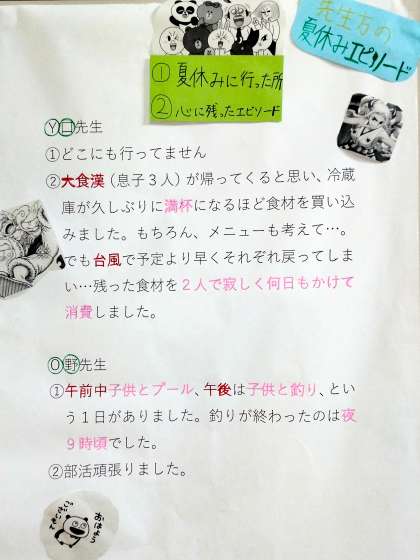 先生方の
夏休みエピソード
①夏休みに行った所
②心に残ったエピソード
Ⓨ口先生
①どこにも行ってません
②大食漢（息子３人）が帰ってくると思い、冷蔵
庫が久しぶりに満杯になるほど食材を買い込
みました。もちろん、メニューも考えて…。
でも台風で予定より早くそれぞれ戻ってしま
い…残った食材を２人で寂しく何日もかけて
消費しました。
Ⓞ野先生
①午前中子供とプール、午後は子供と釣り、とい
う１日がありました。釣りが終わったのは夜
９時頃でした。
②部活頑張りました。
おはよう
ございます